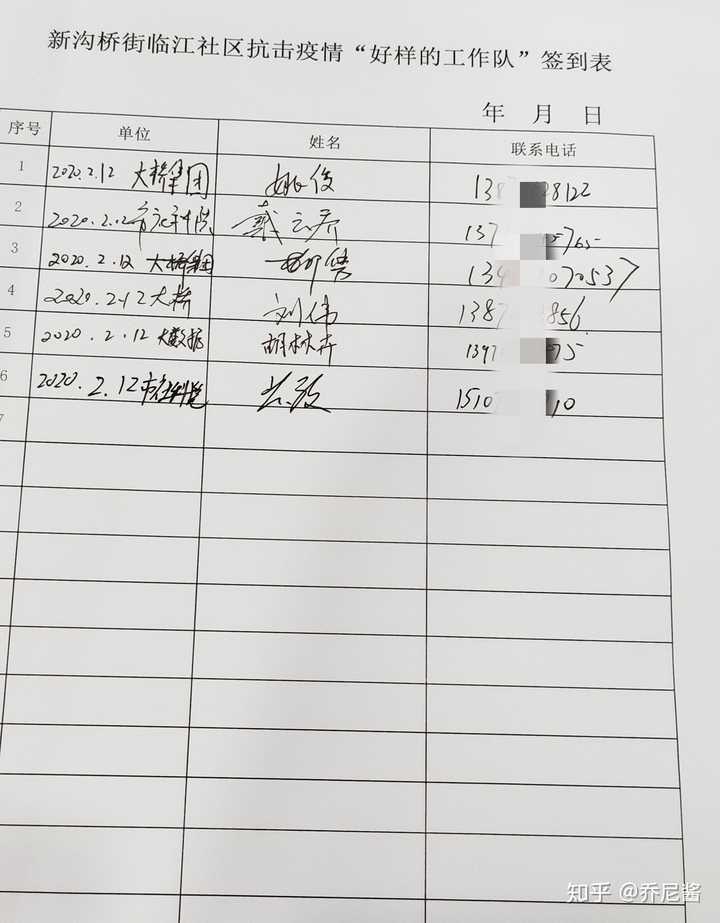 新沟桥街临江社区抗击疫情“好样的工作队”签到表
年 月 日
序号 单位 姓名 联系电话
1 2020.2.12 大桥集团 姚俊 138 8122
2 2020.2.12 戴云乔 137 765
3 2020.2.12 大桥集团 070537
4 2020.2.12 大桥 刘伟 1387 856
5 2020.2.12 大数据 胡林卉 139 75
6 2020.2.12 1510 10
7
知乎 @乔尼酱